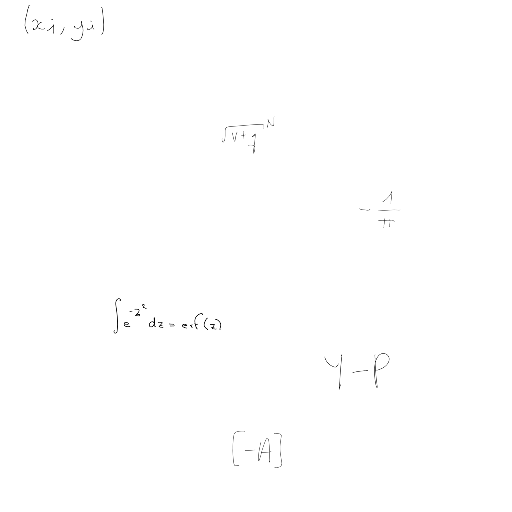 (xi, yi)
√(v+q)^N
-1/π
∫e^{-z^2} dz = erf(z)
Y-P
[-A]